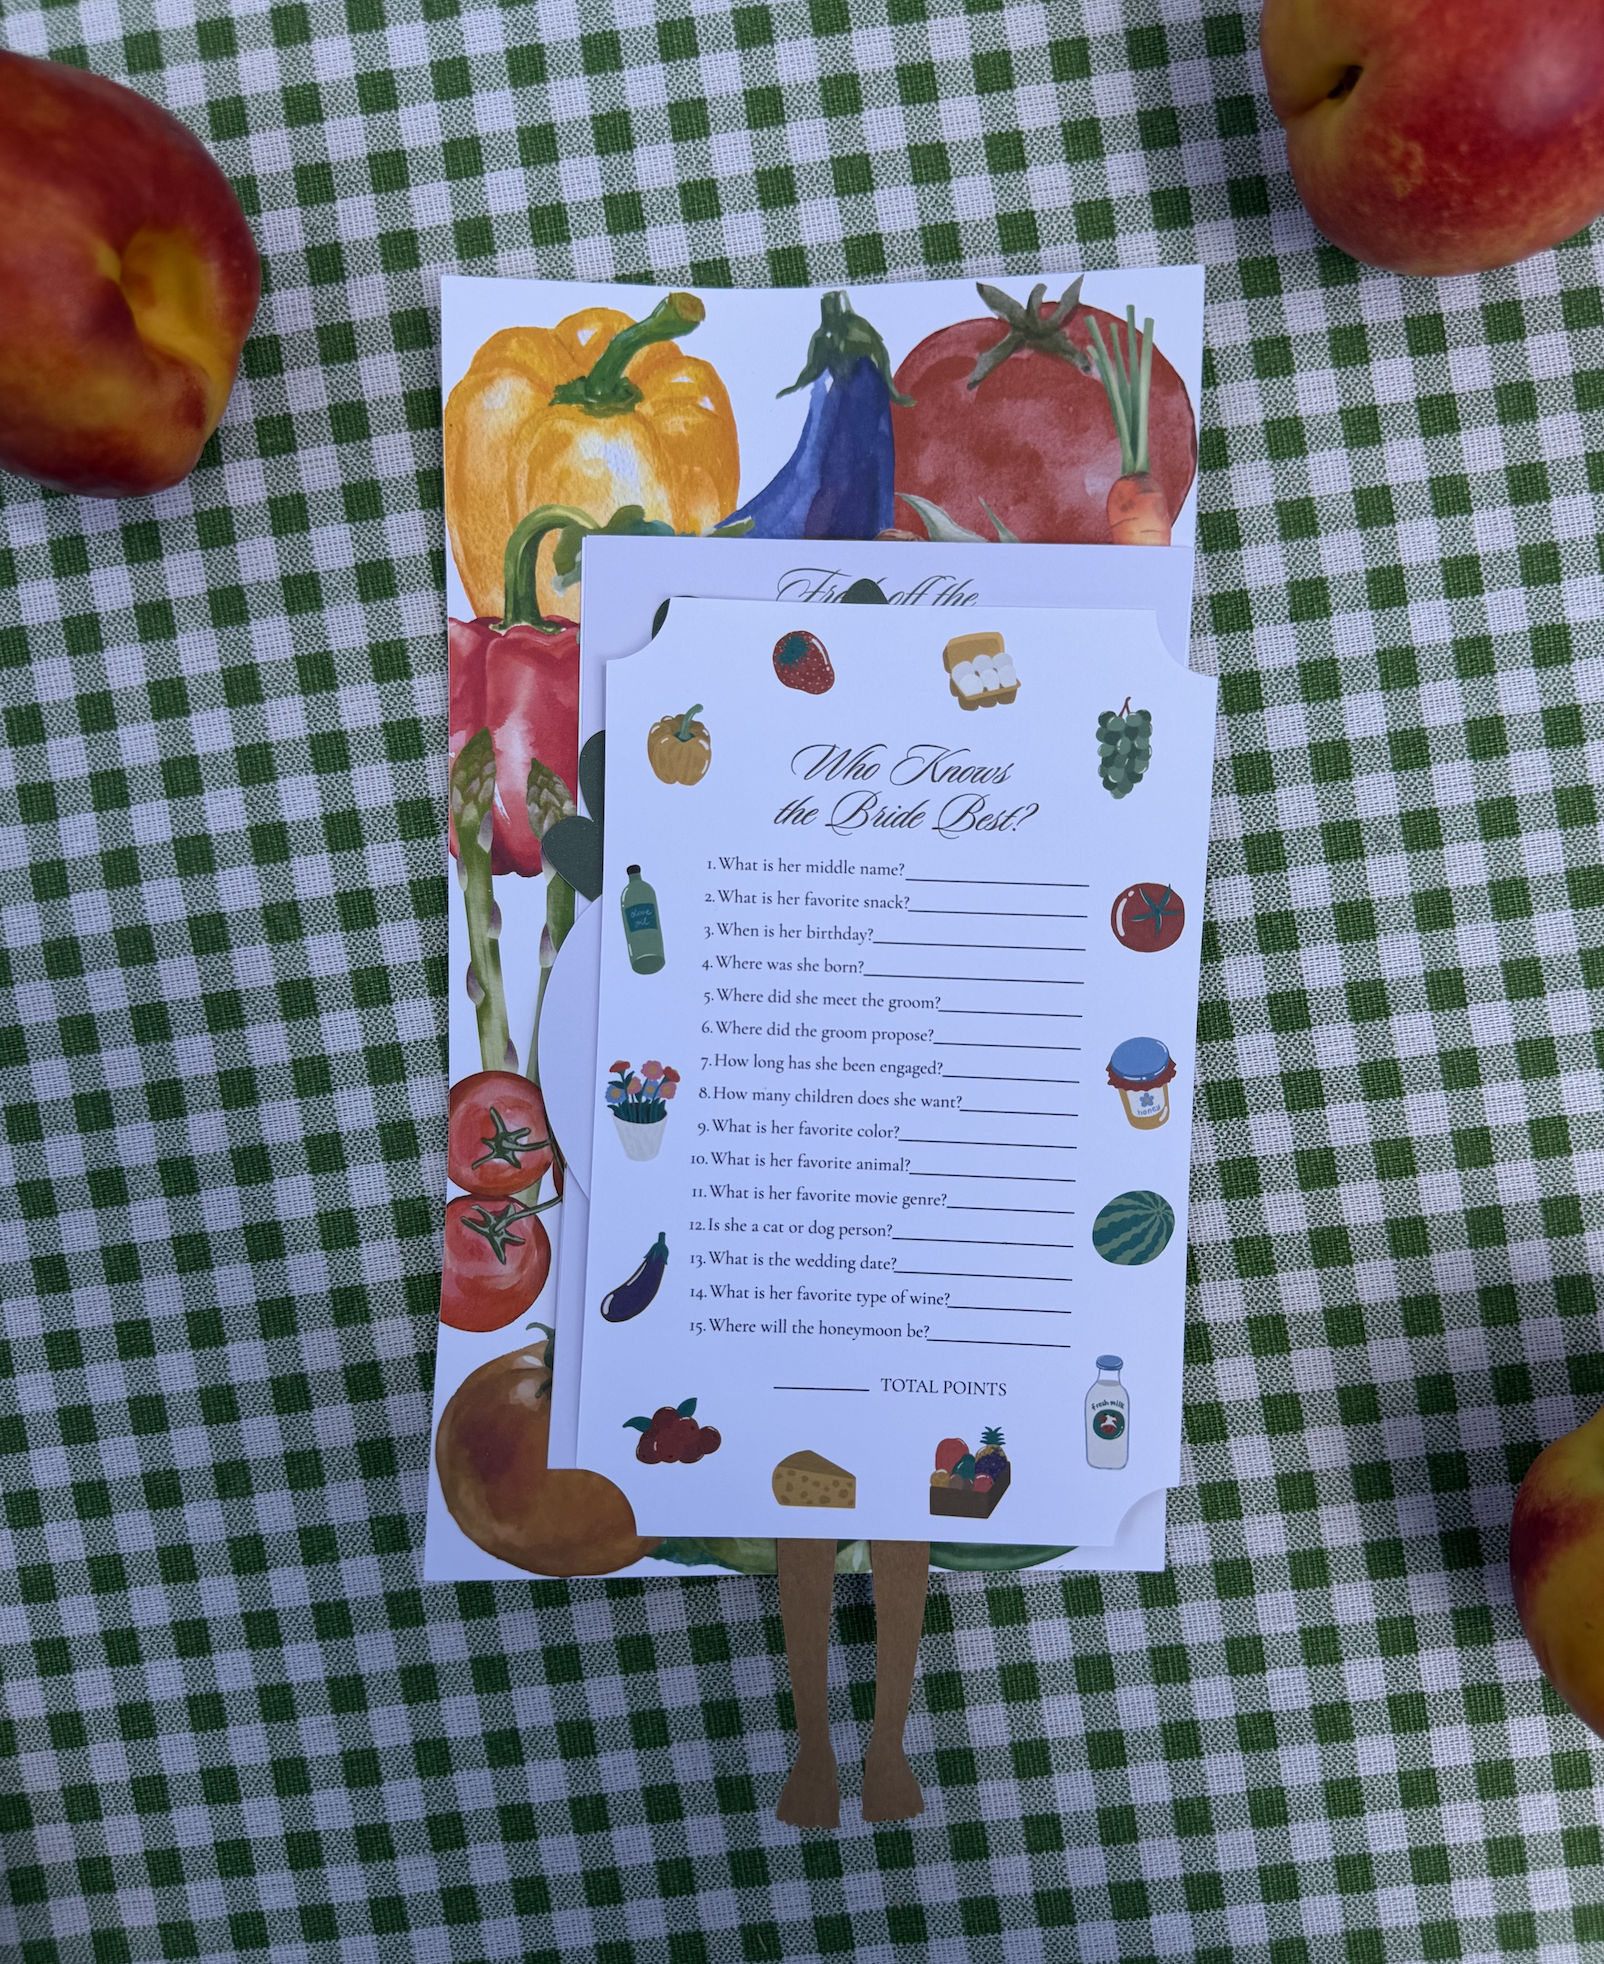 off the
Who Knows
the Bride Best?
1. What is her middle name?
2. What is her favorite snack?
3. When is her birthday?
4. Where was she born?
5. Where did she meet the groom?
6. Where did the groom propose?
7. How long has she been engaged?
8. How many children does she want?
9. What is her favorite color?
10. What is her favorite animal?
11. What is her favorite movie genre?
12. Is she a cat or dog person?
13. What is the wedding date?
14. What is her favorite type of wine?
15. Where will the honeymoon be?
TOTAL POINTS
olive
oil
honey
fresh milk